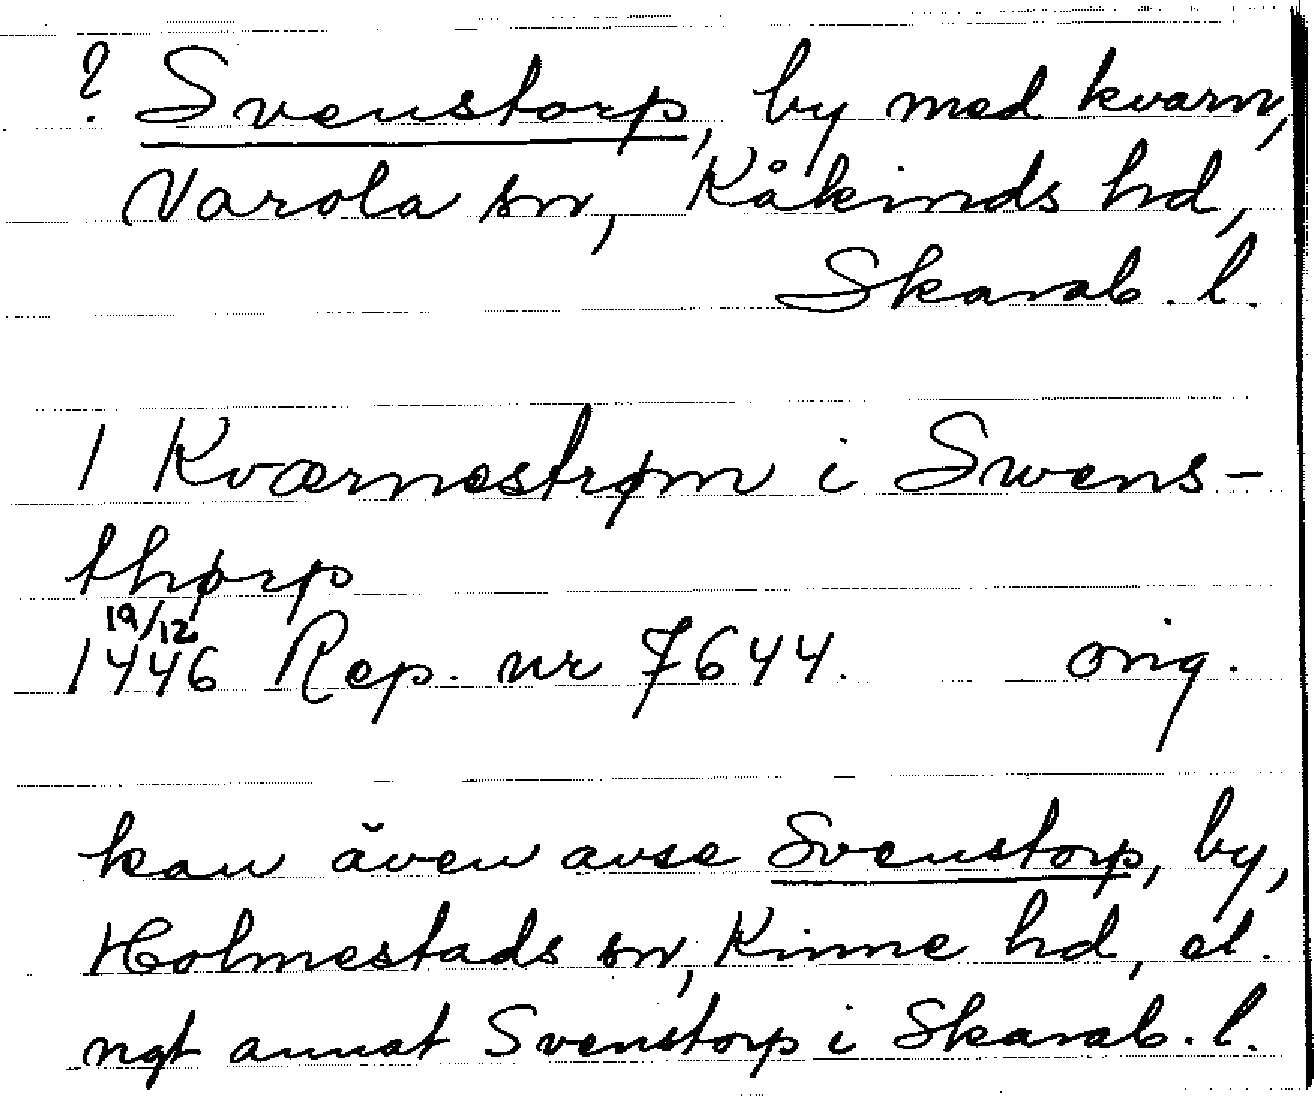 ? Svenstorp, by med kvarn,
Varola sn, Kåkinds hd,
Skarab. l.
1 Kværnestrøm i Swens-
thørp
19/12
1446 Rep. nr 7644. orig.
kan även avse Svenstorp, by,
Holmestads sn, Kinne hd, el.
ngt annat Svenstorp i Skarab. l.